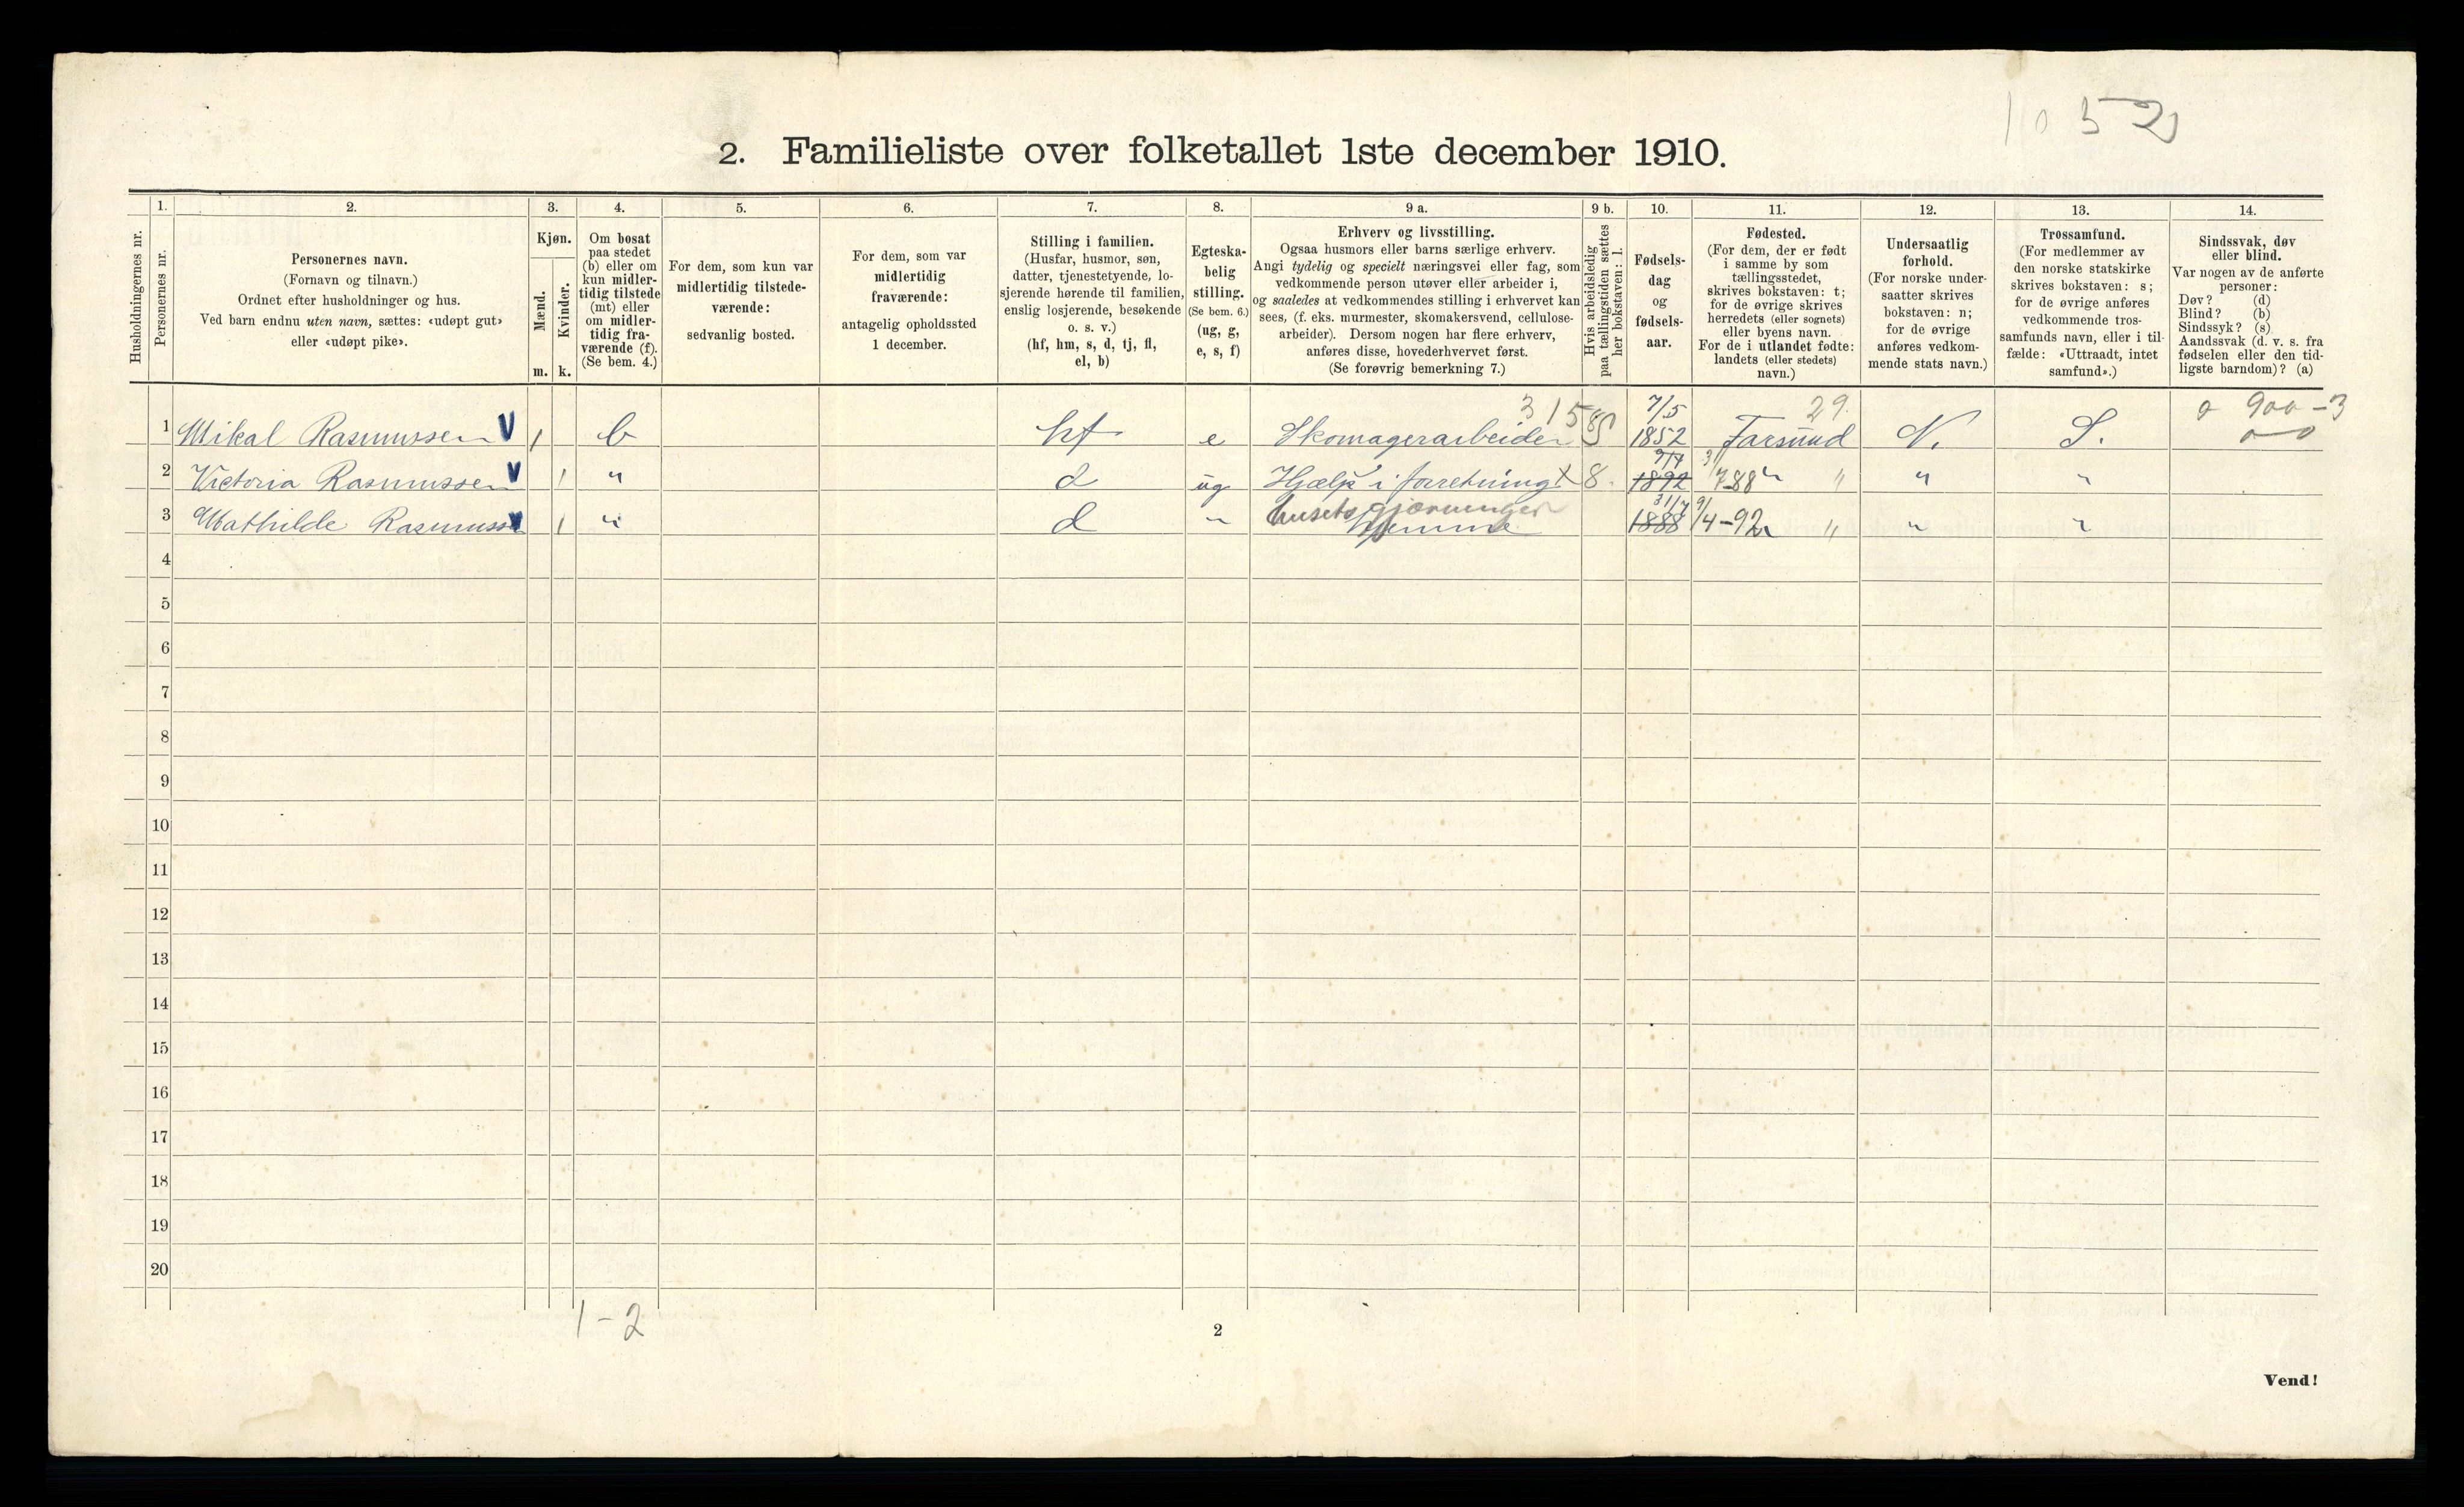 1052
2. Familieliste over folketallet 1ste december 1910.
Husholdningernes nr.
1.
Personernes nr.
2.
Personernes navn.
(Fornavn og tilnavn.)
Ordnet efter husholdninger og hus.
Ved barn endnu uten navn, sættes: «udøpt gut»
eller «udøpt pike».
3.
Kjøn.
Mænd.
Kvinder.
m. k.
4.
Om bosat
paa stedet
(b) eller om
kun midler-
tidig tilstede
(mt) eller
om midler-
tidig fra-
værende (f).
(Se bem. 4.)
5.
For dem, som kun var
midlertidig tilstede-
værende:
sedvanlig bosted.
6.
For dem, som var
midlertidig
fraværende:
antagelig opholdssted
1 december.
7.
Stilling i familien.
(Husfar, husmor, søn,
datter, tjenestetyende, lo-
sjerende hørende til familien,
enslig losjerende, besøkende
o. s. v.)
(hf, hm, s, d, tj, fl,
el, b)
8.
Egteska-
belig
stilling.
(Se bem. 6.)
(ug, g,
e, s, f)
9 a.
Erhverv og livsstilling.
Ogsaa husmors eller barns særlige erhverv.
Angi tydelig og specielt næringsvei eller fag, som
vedkommende person utøver eller arbeider i,
og saaledes at vedkommendes stilling i erhvervet kan
sees, (f. eks. murmester, skomakersvend, cellulose-
arbeider). Dersom nogen har flere erhverv,
anføres disse, hovederhvervet først.
(Se forøvrig bemerkning 7.)
9 b.
Hvis arbeidsledig
paa tællingstiden sættes
her bokstaven: l.
10.
Fødsels-
dag
og
fødsels-
aar.
11.
Fødested.
(For dem, der er født
i samme by som
tællingsstedet,
skrives bokstaven: t;
for de øvrige skrives
herredets (eller sognets)
eller byens navn.
For de i utlandet fødte:
landets (eller stedets)
navn.)
12.
Undersaatlig
forhold.
(For norske under-
saatter skrives
bokstaven: n;
for de øvrige
anføres vedkom-
mende stats navn.)
13.
Trossamfund.
(For medlemmer av
den norske statskirke
skrives bokstaven: s;
for de øvrige anføres
vedkommende tros-
samfunds navn, eller i til-
fælde: «Uttraadt, intet
samfund».)
14.
Sindssvak, døv
eller blind.
Var nogen av de anførte
personer:
Døv? (d)
Blind? (b)
Sindssyk? (s)
Aandssvak (d. v. s. fra
fødselen eller den tid-
ligste barndom)? (a)
3158 7/5 29. 0 900-3
1 Mikal Rasmussen V 1 b hf e Skomagerarbeider 1852 Farsund N. S. 0-0
9/4 31/
2 Victoria Rasmussen V 1 " d ug Hjælp i forretning X 8. 1892 7-88 " " " "
husets gjerninger 31/7 9/
3 Mathilde Rasmussen V 1 " d " Hjemme 1888 4-92 " " " "
4
5
6
7
8
9
10
11
12
13
14
15
16
17
18
19
20
1-2
2
Vend!